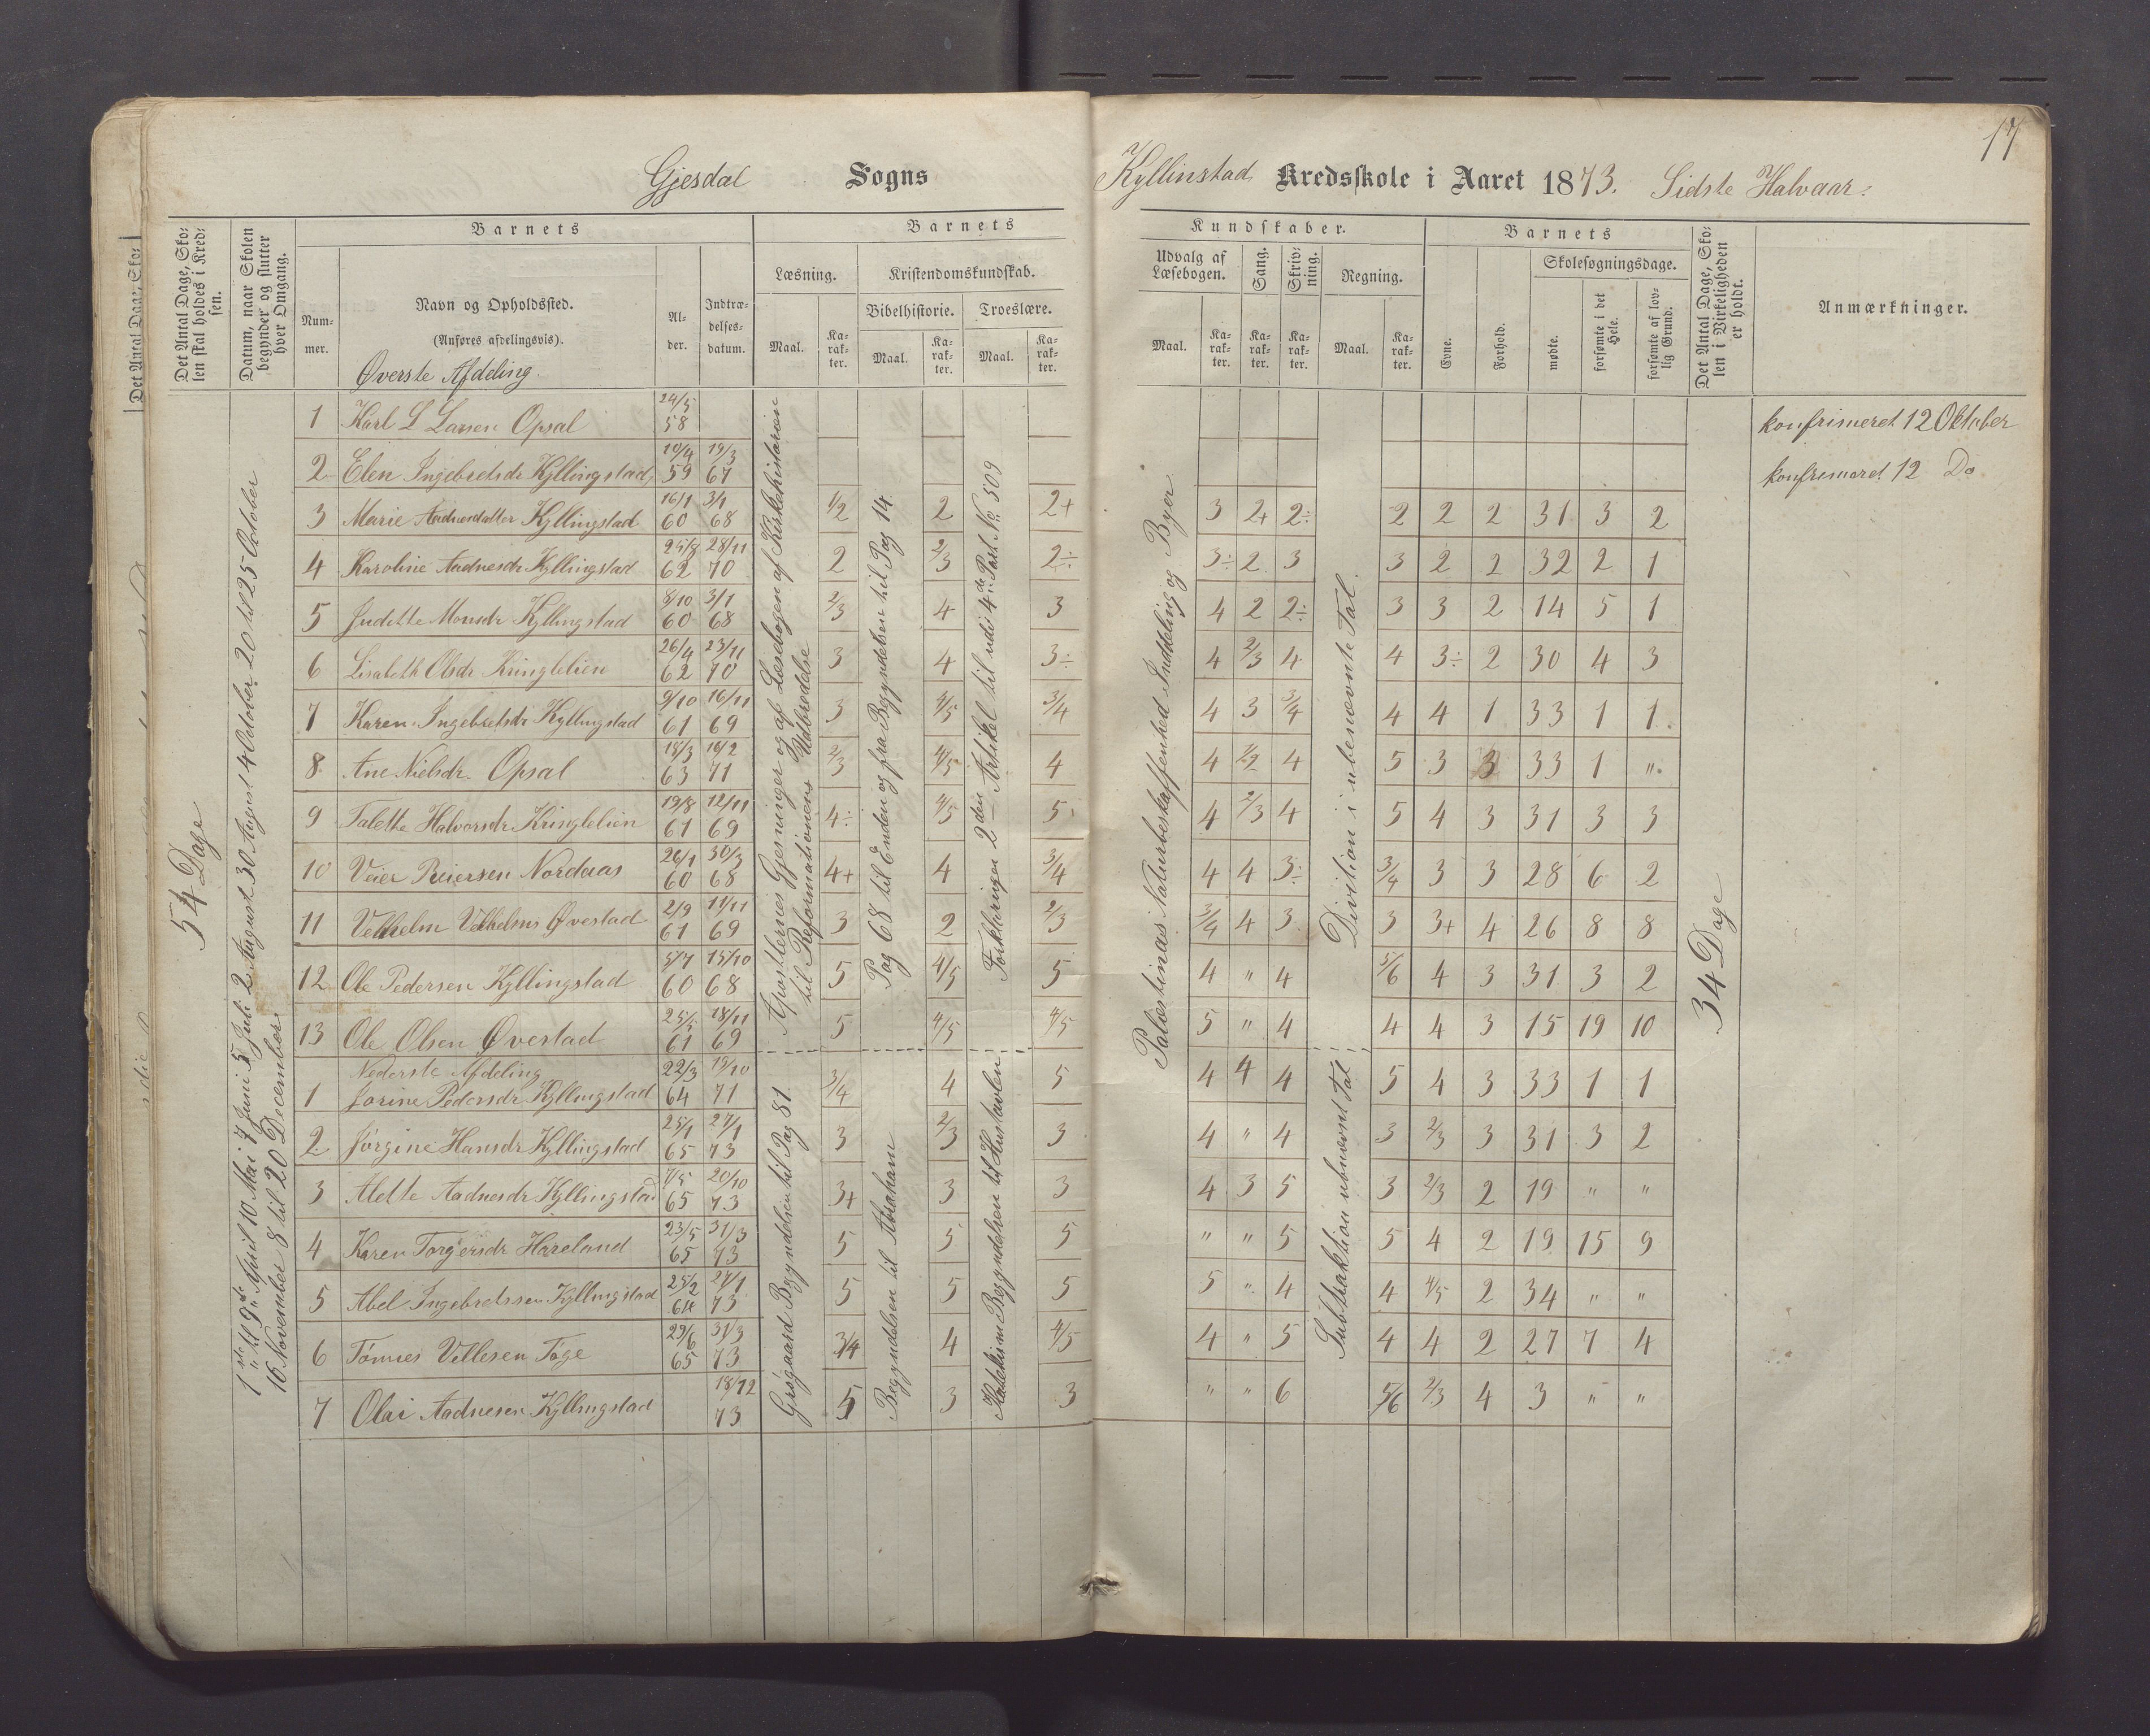 17
Gjesdal Sogns Kyllinstad Kredsskole i Aaret 1873. Sidste Halvaar.
Det Antal Dage, Sko-
len skal holdes i Kred-
sen.
Datum, naar Skolen
begynder og slutter
hver Omgang.
Barnets
Num-
mer.
Navn og Opholdssted.
(Anføres afdelingsvis).
Al-
der.
Indtræ-
delses-
datum.
Barnets
Læsning.
Maal.
Ka-
rak-
ter.
Kristendomskundskab.
Bibelhistorie.
Maal.
Ka-
rak-
ter.
Troeslære.
Maal.
Ka-
rak-
ter.
Kundskaber.
Udvalg af
Læsebogen.
Maal.
Ka-
rak-
ter.
Sang.
Ka-
rak-
ter.
Skriv-
ning.
Ka-
rak-
ter.
Regning.
Maal.
Ka-
rak-
ter.
Barnets
Evne.
Forhold.
Skolesøgningsdage.
mødte.
forsømte i det
Hele.
forsømte af lov-
lig Grund.
Det Antal Dage, Sko-
len i Virkeligheden
er holdt.
Anmærkninger.
54 Dage
1ste til 9de April 10 Mai 7 Juni 5 Juli 2 August 30 August 4 October 20 til 25 October
16 November 8 til 20 December
Apostlernes Gjerninger og af Læsebogen af Kirkehistorien
til Reformationens Udbredelse
Pag 68 til Enden og fra Begyndelsen til Pag 14.
Forklaringen 2den Artikel til udi 4de Part No. 509
Palæstinas Naturbeskaffenhed Inddeling og Byer
Division i ubenævnte Tal.
34 Dage
Øverste Afdeling.
1 Karl L Larsen Opsal 24/5 58 konfrimeret 12 Oktober
2 Elen Ingebretsdr Kyllingstad 10/4 59 19/3 67 konfrimeret 12 Do
3 Marie Aadnesdatter Kyllingstad 16/1 60 3/1 68 1/2 2 2+ 3 2+ 2÷ 2 2 2 31 3 2
4 Karoline Aadnesdr Kyllingstad 62 28/11 70 2 2/3 2÷ 3÷ 2 3 3 2 2 32 2 1
5 Judithe Monsdr Kyllingstad 8/10 60 3/1 68 2/3 4 3 4 2 2÷ 3 3 2 14 5 1
6 Lisabeth Olsdr Kringlelien 26/4 62 23/11 70 3 4 3÷ 4 2/3 4 4 3÷ 2 30 4 3
7 Karen Ingebretsdr Kyllingstad 9/10 61 16/11 69 3 4/5 3/4 4 3 3/4 4 4 1 33 1 1
8 Ane Nielsdr. Opsal 18/3 63 16/2 71 2/3 4/5 4 4 4 5 3 3 33 1 "
9 Talette Halvorsdr Kringlelien 19/8 61 12/11 69 4÷ 4/5 5 4 2/3 4 5 4 3 31 3 3
10 Veier Reiersen Nordaas 26/1 60 30/3 68 4+ 4 3/4 4 4 3÷ 3/4 3 3 28 6 2
11 Velhelm Velhelms Øvestad 2/9 61 11/11 69 3 2 2/3 3/4 4 3 3 3+ 4 26 8 8
12 Ole Pedersen Kyllingstad 5/7 60 15/10 68 5 4/5 5 4 " 4 5/6 4 3 31 3 2
13 Ole Olsen Øvestad 61 18/11 69 5 4/5 4/5 5 " 4 4 4 3 15 19 10
Nederste Afdeling
Grøgaard Begyndelsen til Pag 81
Begyndelsen til Abraham
Katekisme Begyndelsen til Hustavlen
Subtraktion ubnævnt Tal
1 Jorine Pedersdr Kyllingstad 22/3 64 19/10 71 3/4 4 5 4 4 4 5 4 3 33 1 1
2 Jørgine Hansdr Kyllingstad 25/1 65 27/1 73 3 2/3 3 4 " 4 3 2/3 3 31 3 2
3 Alette Aadnesdr Kyllingstad 7/5 65 20/10 73 3+ 3 3 4 3 5 3 2/3 2 19 " "
4 Karen Torgersdr Høreland 23/5 65 31/3 73 5 5 5 " " 5 5 4 2 19 15 9
5 Abel Ingebretssen Kyllingstad 25/2 64 27/1 73 5 5 5 5 " 4 4 4/5 2 34 " "
6 Tønnes Villesen Tøge 29/6 65 31/3 73 3/4 4 4/5 4 " 5 4 4 2 27 7 4
7 Olai Aadnesen Kyllingstad 18/12 73 5 3 3 " " 6 5/6 2/3 4 3 " "